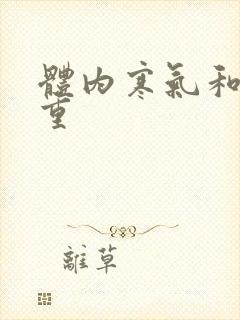 體内寒氣和
重
離草